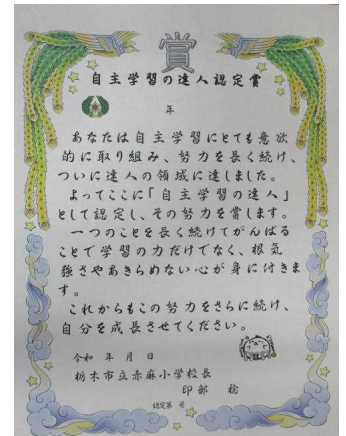 賞
自主学習の達人認定賞
年
あなたは自主学習にとても意欲
的に取り組み、努力を長く続け、
ついに達人の領域に達しました。
よってここに「自主学習の達人」
として認定し、その努力を賞します。
一つのことを長く続けてがんばる
ことで学習の力だけでなく、根気
強さやあきらめない心が身に付きま
す。
これからもこの努力をさらに続け、
自分を成長させてください。
令和 年 月 日
栃木市立赤麻小学校長
印部 稔
認定第 号